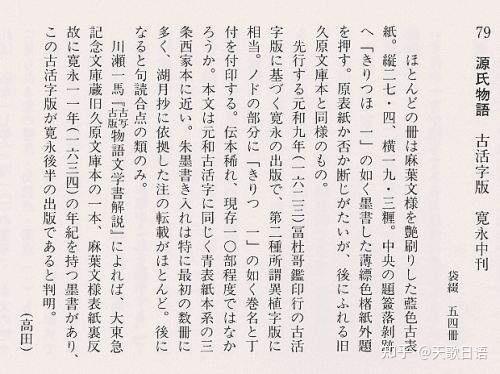 79　源氏物語　古活字版　寛永中刊
袋綴　五四冊
ほとんどの冊は麻葉文様を艶刷りした藍色古表
紙。縦二七・四、横一九・三糎。中央の題簽落剝跡
へ「きりつほ　一」の如く墨書した薄縹色楮紙外題
を押す。原表紙か否か断じがたいが、後にふれる旧
久原文庫本と同様のもの。
先行する元和九年（一六二三）冨杜哥鑑印行の古活
字版に基づく寛永の出版で、第二種所謂異植字版に
相当。ノドの部分に「きりつ　一」の如く巻名と丁
付を付印する。伝本稀れ、現存一〇部程度ではなか
ろうか。本文は元和古活字に同じく青表紙本系の三
条西家本に近い。朱墨書き入れは特に最初の数冊に
多く、湖月抄に依拠した注の転載がほとんど。後に
なると句読合点の類のみ。
川瀬一馬『古写古版物語文学書解説』によれば、大東急
記念文庫蔵旧久原文庫本の一本、麻葉文様表紙裏反
故に寛永一一年（一六三四）の年紀を持つ墨書があり、
この古活字版が寛永後半の出版であると判明。
（高田）
知乎 @天歌日语